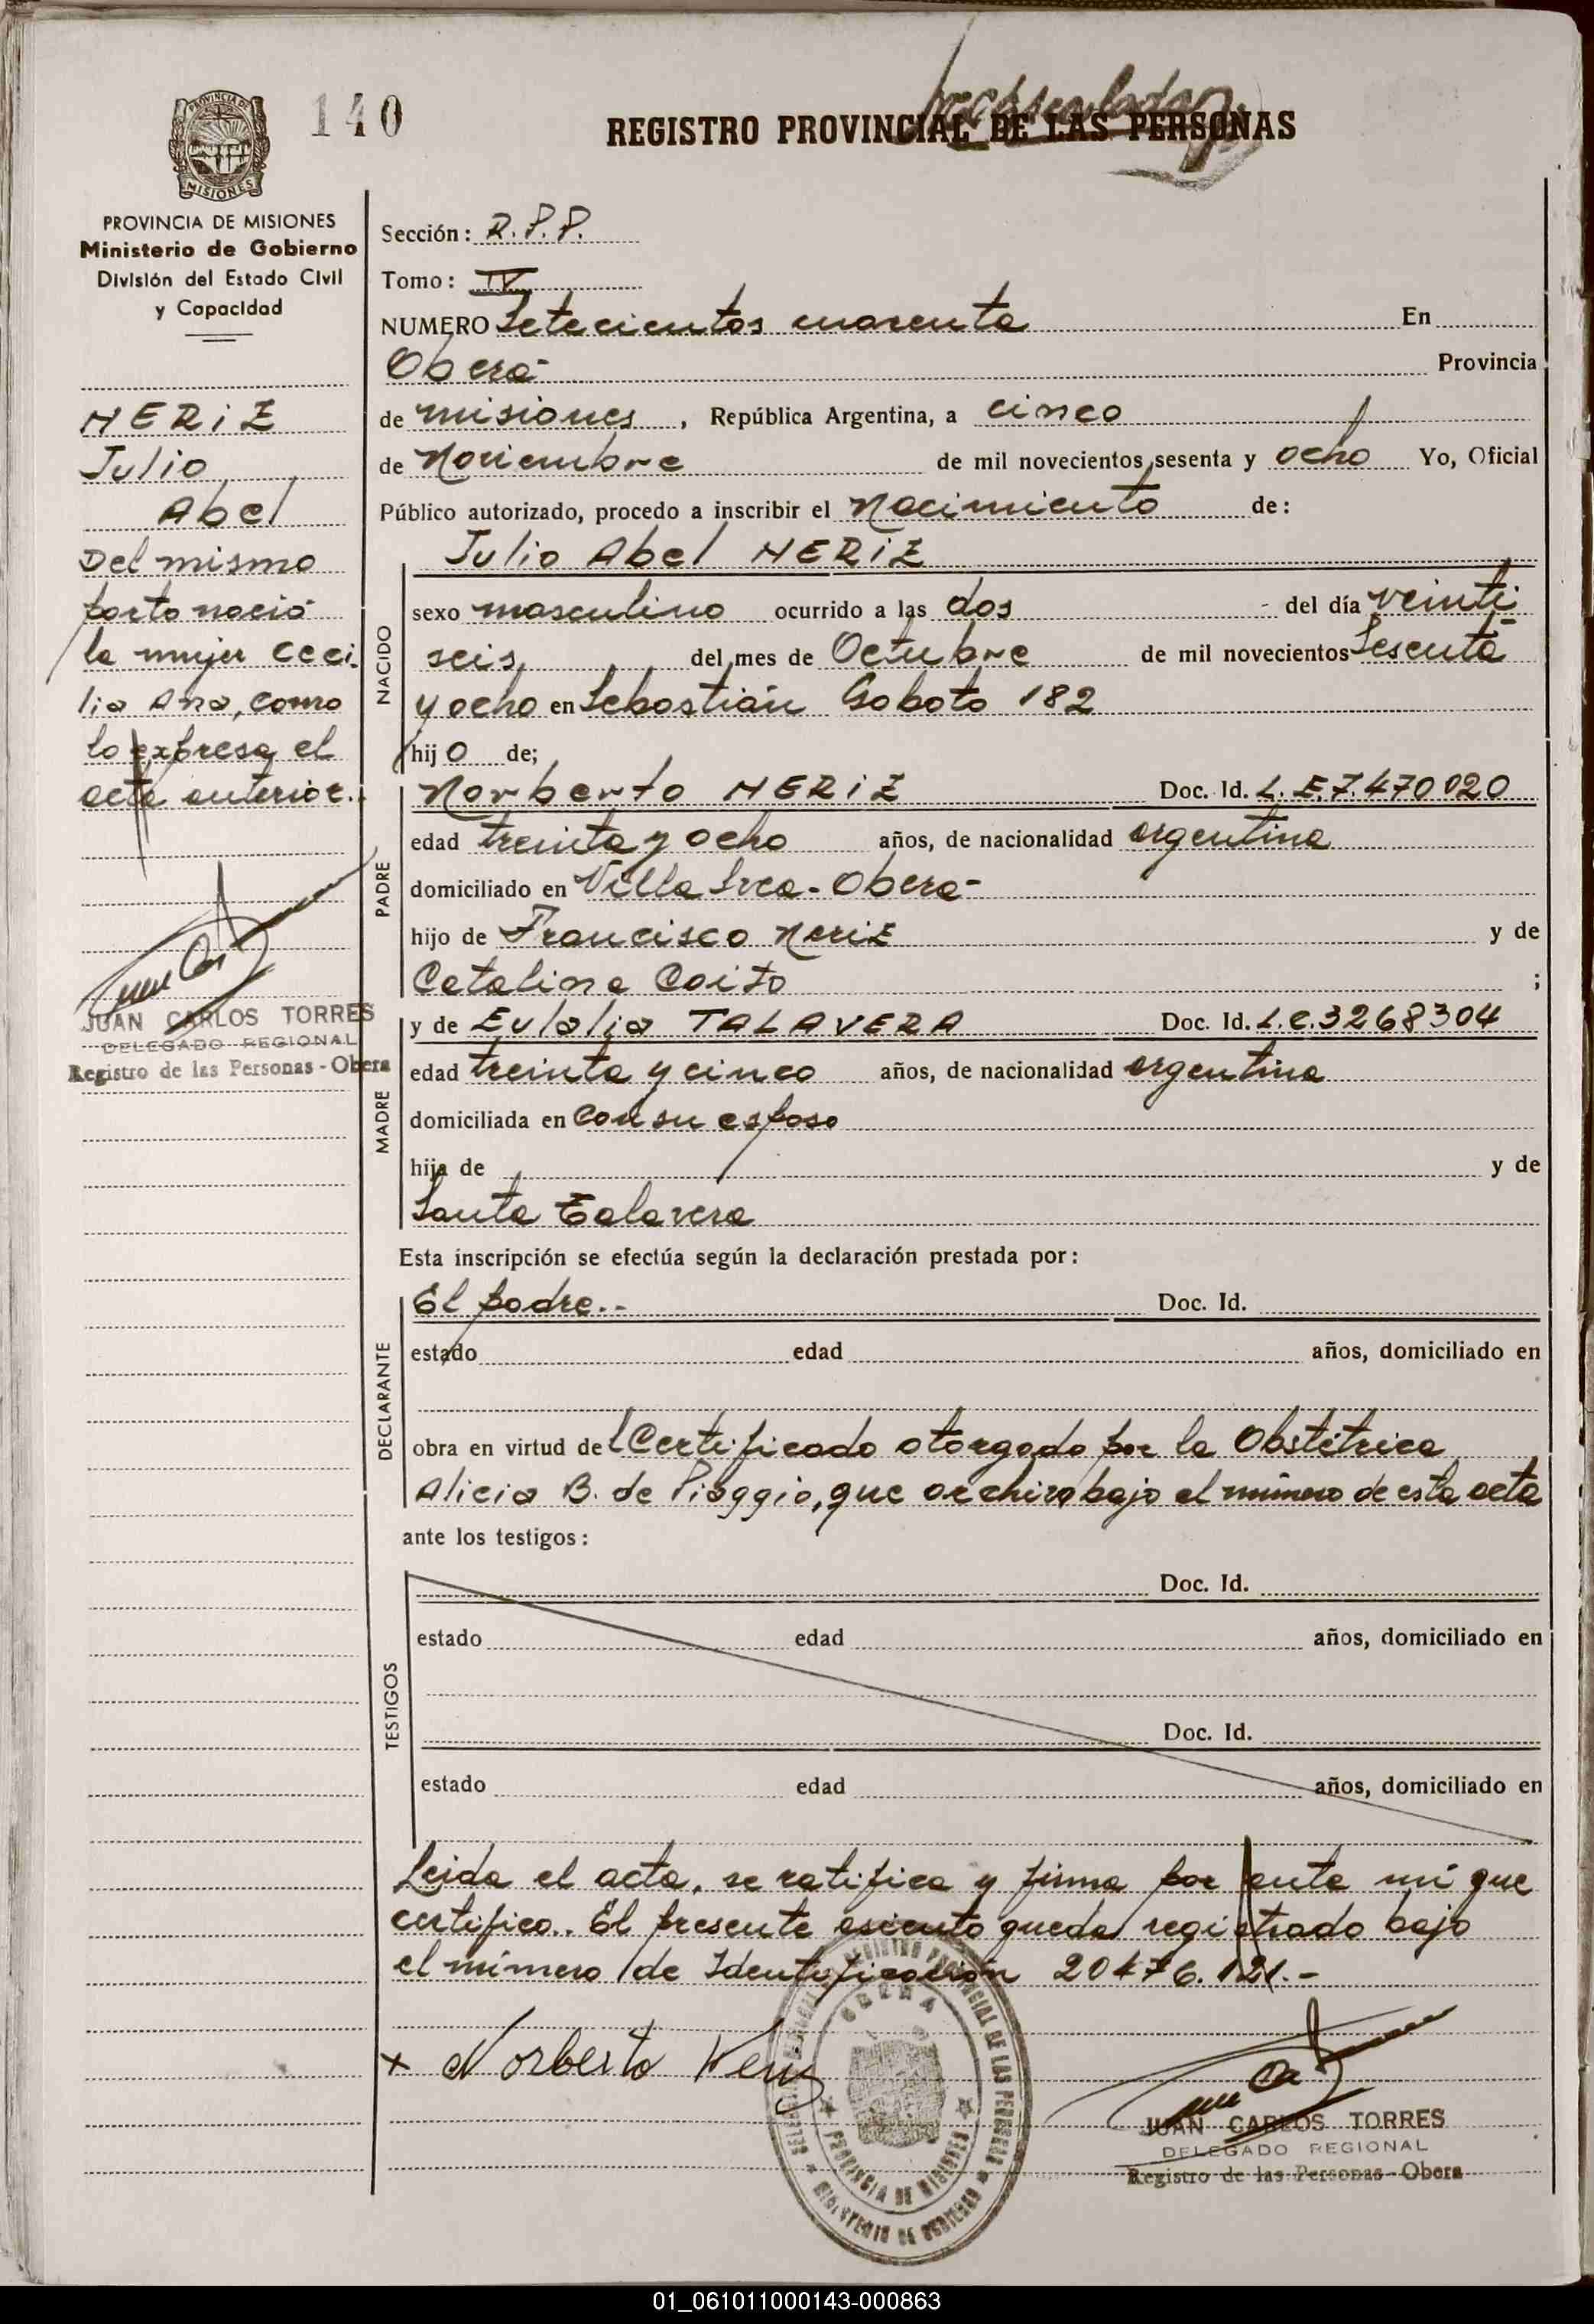 140
REGISTRO PROVINCIAL DE LAS PERSONAS
PROVINCIA DE MISIONES
PROVINCIA DE MISIONES
Ministerio de Gobierno
División del Estado Civil
y Capacidad
HERiZ
Julio
Abel
Del mismo
parto nació
la mujer Ceci
lia Ana, como
lo expresa el
acta anterior.
JUAN CARLOS TORRES
DELEGADO REGIONAL
Registro de las Personas - Obera
Sección: R.P.P.
Tomo: IV
NUMERO Setecientos cuarenta En
Oberá Provincia
de Misiones, República Argentina, a cinco
de Noviembre de mil novecientos sesenta y ocho Yo, Oficial
Público autorizado, procedo a inscribir el Nacimiento de:
Julio Abel HERiZ
NACIDO
sexo masculino ocurrido a las dos - del día veinti
seis, del mes de Octubre de mil novecientos Sesenta
y ocho en Sebastián Gaboto 182
hijo de;
PADRE
Norberto HERiZ Doc. Id. L.E.7.470020
edad treinta y ocho años, de nacionalidad argentina
domiciliado en Villa Svea - Oberá -
hijo de Francisco Heriz y de
Catalina Coito ;
MADRE
y de Eulalia TALAVERA Doc. Id. L.C.3268304
edad treinta y cinco años, de nacionalidad argentina
domiciliada en Con su esposo
hija de y de
Santa Talavera
Esta inscripción se efectúa según la declaración prestada por:
DECLARANTE
El padre.- Doc. Id.
estado edad años, domiciliado en
obra en virtud del Certificado otorgado por la Obstétrica
Alicia B. de Piaggio, que archivo bajo el número de esta acta
ante los testigos:
TESTIGOS
Doc. Id.
estado edad años, domiciliado en
Doc. Id.
estado edad años, domiciliado en
Leida el acta, se ratifica y firma por ante mí que
certifico.. El presente asiento queda registrado bajo
el número de Identificación 20476.121.-
x Norberto Heriz
OBERA
PROVINCIA DE MISIONES
MINISTERIO DE GOBIERNO
JUAN CARLOS TORRES
DELEGADO REGIONAL
Registro de las Personas - Obera
01_061011000143-000863